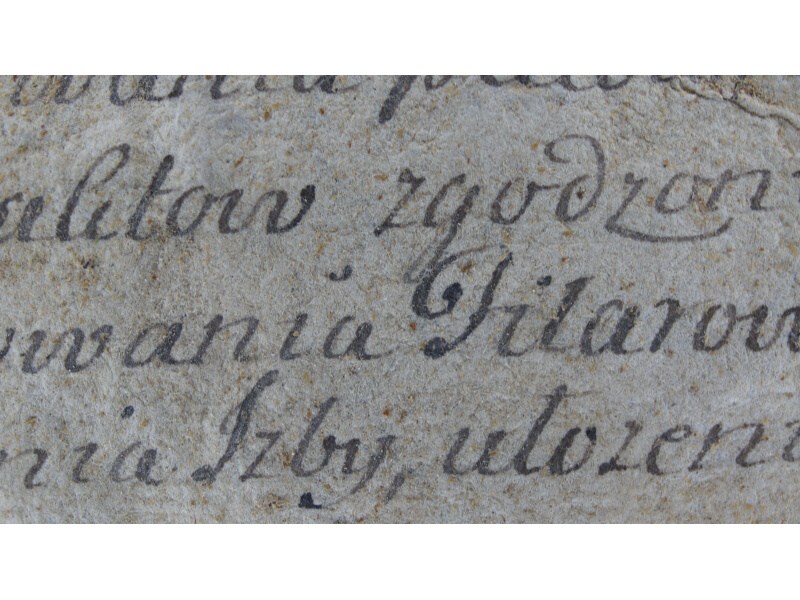 alitow zgodzon
wania Filarow
nia Izby, ulozeni